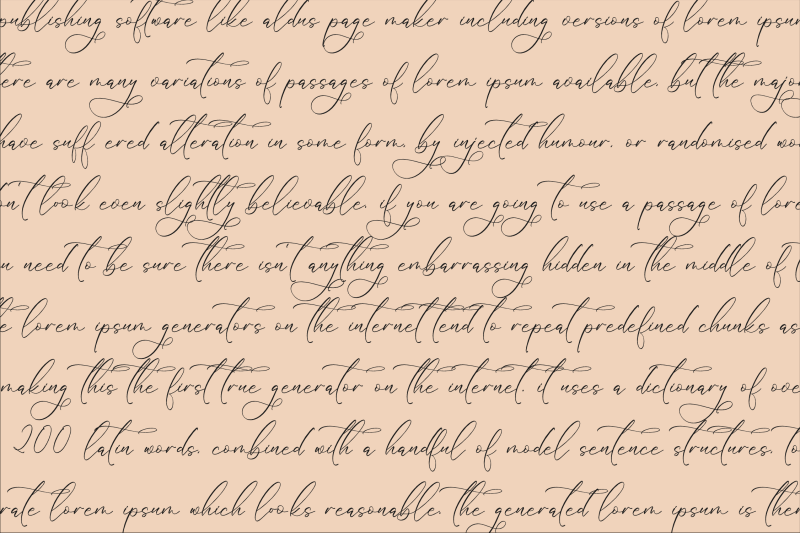 publishing software like aldus page maker including versions of lorem ipsum
ere are many variations of passages of lorem ipsum available. but the major
have suff ered alteration in some form. by injected humour. or randomised wo
on't look even slightly believable. if you are going to use a passage of lore
u need to be sure there isn't anything embarrassing hidden in the middle of t
e lorem ipsum generators on the internet tend to repeat predefined chunks as
making this the first true generator on the internet. it uses a dictionary of ove
200 latin words. combined with a handful of model sentence structures. to
rate lorem ipsum which looks reasonable. the generated lorem ipsum is ther